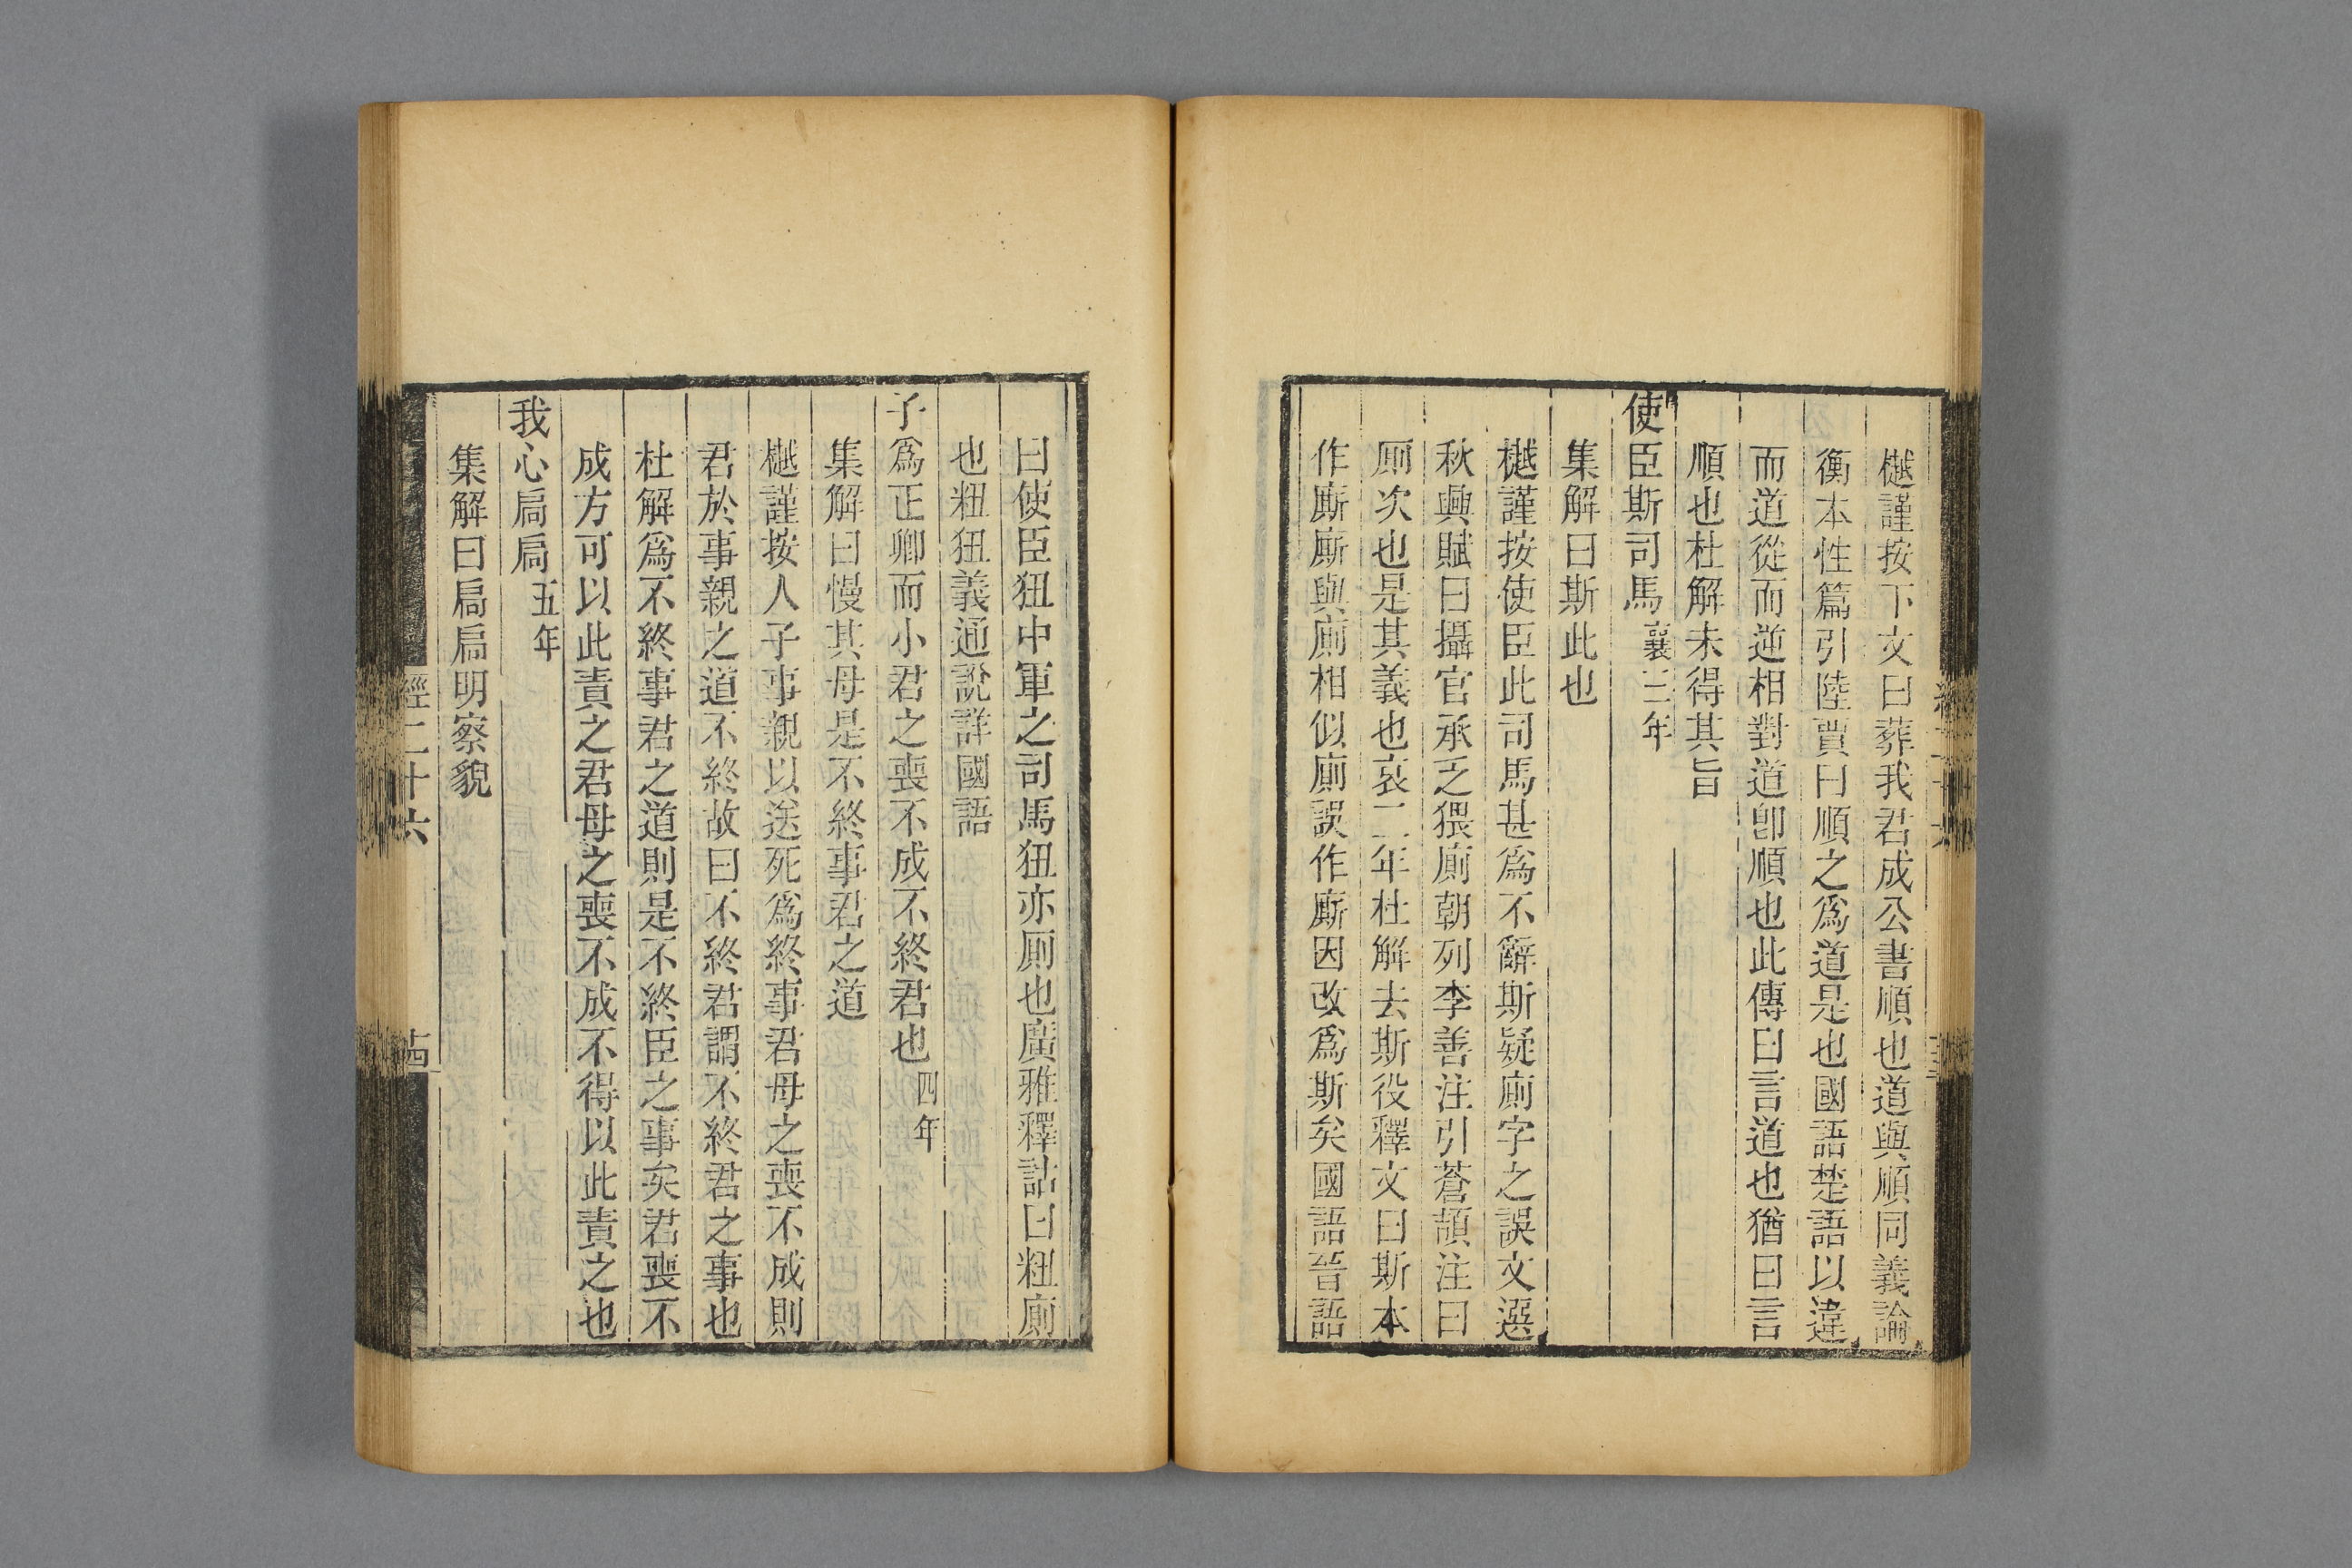 樾謹按下文曰葬我君成公書順也道與順同義論
衡本性篇引陸賈曰順之爲道是也國語楚語以違
而道從而逆相對道卽順也此傳曰言道也猶曰言
順也杜解未得其旨
使臣斯司馬襄三年
集解曰斯此也
樾謹按使臣此司馬甚爲不辭斯疑廝字之誤文選
秋興賦曰攝官承乏猥廁朝列李善注引蒼頡注曰
廁次也是其義也哀二年杜解去斯役釋文曰斯本
作廝廝與廁相似廁誤作廝因改爲斯矣國語晉語
曰使臣狃中軍之司馬狃亦廁也廣雅釋詁曰粈廁
也粈狃義通說詳國語
子爲正卿而小君之喪不成不終君也四年
集解曰慢其母是不終事君之道
樾謹按人子事親以送死爲終事君母之喪不成則
君於事親之道不終故曰不終君謂不終君之事也
杜解爲不終事君之道則是不終臣之事矣君喪不
成方可以此責之君母之喪不成不得以此責之也
我心扃扃五年
集解曰扃扃明察貌
經二十六
十四